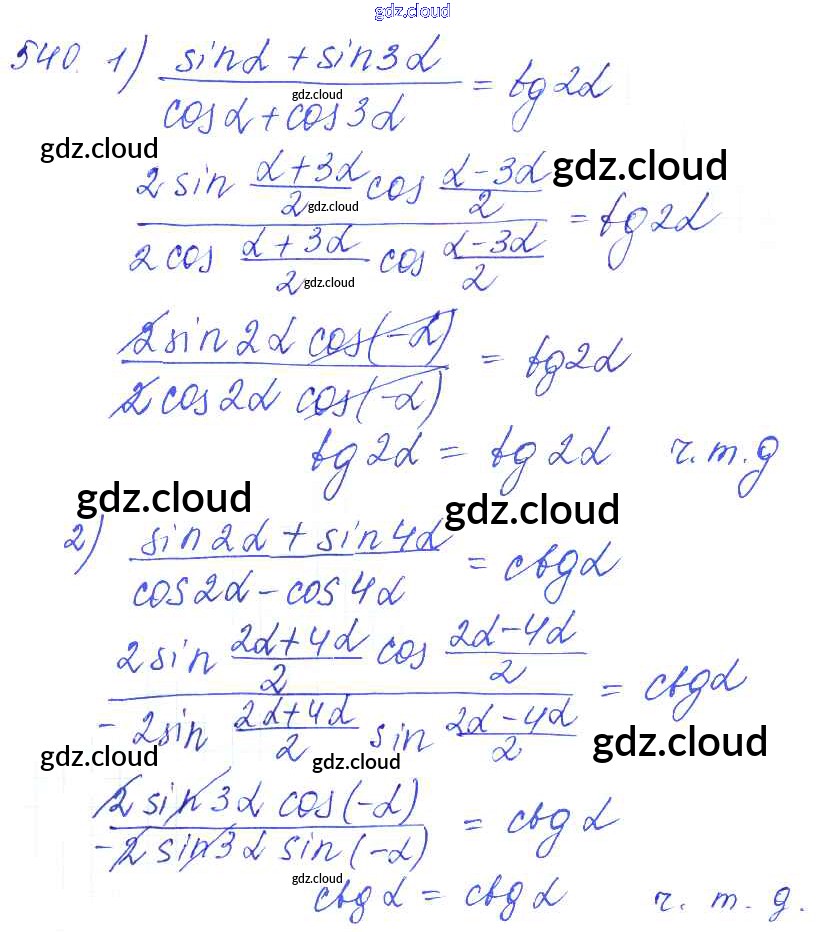 gdz.cloud
540. 1) (sinα + sin3α)/(cosα + cos3α) = tg2α
gdz.cloud
gdz.cloud
(2 sin (α+3α)/2 cos (α-3α)/2)/(2 cos (α+3α)/2 cos (α-3α)/2) = tg2α
gdz.cloud
gdz.cloud
gdz.cloud
(2sin2α cos(-α))/(2cos2α cos(-α)) = tg2α
tg2α = tg2α ч.т.д
gdz.cloud
gdz.cloud
2) (sin2α + sin4α)/(cos2α - cos4α) = ctgα
(2sin (2α+4α)/2 cos (2α-4α)/2)/(-2sin (2α+4α)/2 sin (2α-4α)/2) = ctgα
gdz.cloud
gdz.cloud
gdz.cloud
(2sin3α cos(-α))/(-2sin3α sin(-α)) = ctgα
gdz.cloud
ctgα = ctgα ч.т.д.